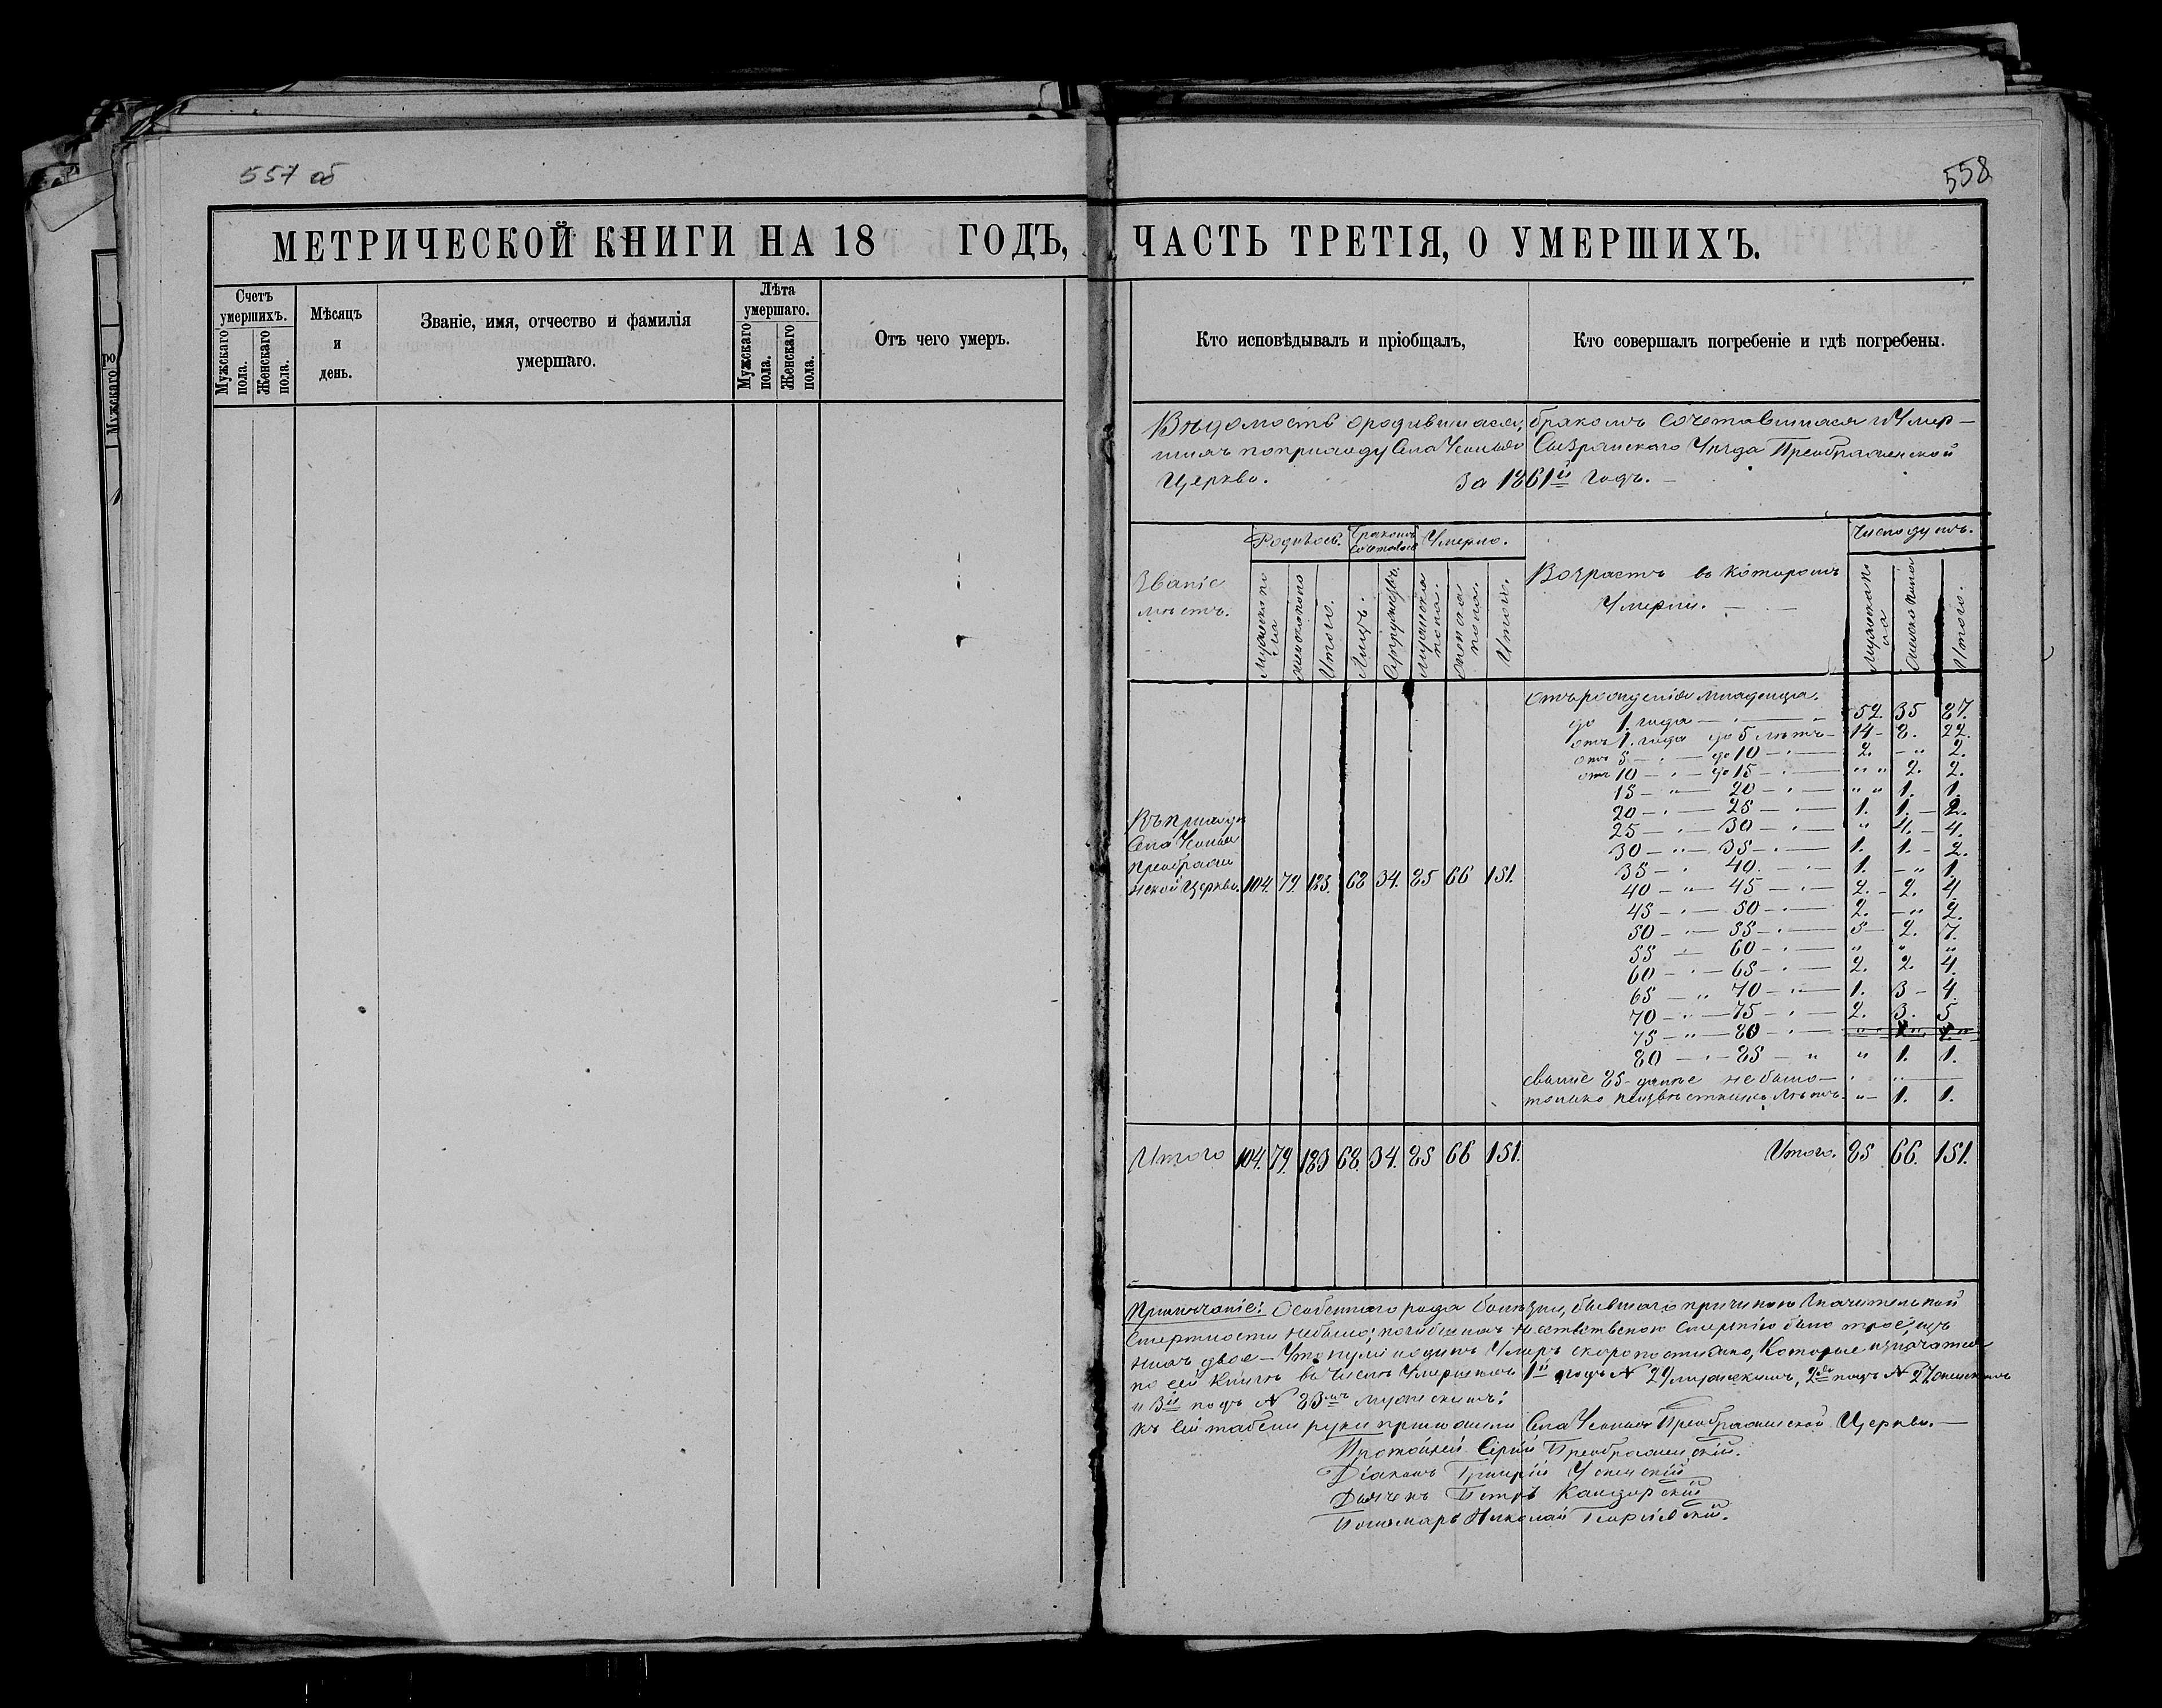 557 об
558
МЕТРИЧЕСКОЙ КНИГИ НА 18 ГОДЪ, ЧАСТЬ ТРЕТІЯ, О УМЕРШИХЪ.
Счетъ умершихъ.
Мужскаго пола.
Женскаго пола.
Мѣсяцъ и день.
Званіе, имя, отчество и фамилія умершаго.
Лѣта умершаго.
Мужскаго пола.
Женскаго пола.
Отъ чего умеръ.
Кто исповѣдывалъ и пріобщалъ,
Кто совершалъ погребеніе и гдѣ погребены.
Вѣдомость ородившихся, бракомъ сочетавшихся и Умер-
шихъ поприходу Села Усолья Сызранскаго Уѣзда Преображенской
Церкви. За 1861й годъ.
Званіе мѣстъ.
Родилось.
Бракомъ сочеталось
Умерло.
Возрастъ въ которомъ Умерли.
Число душъ.
мужска пола
женска пола
Итого.
Лицъ.
Супружествъ.
мужска пола.
женска пола.
Итого.
мужска пола
женска пола
Итого.
отъ рожденія младенца.
до 1 года 52. 35 87.
отъ 1. года до 5 лѣтъ 14 8. 22.
отъ 5 до 10 2. " 2.
отъ 10 до 15 " " 2. 2.
15 " 20 " " 1. 1.
20 25 1. 1. 2.
25 30 " 4. 4.
30 " 35 1. 1. 2.
35 40 1. " 1
40 " 45 2. 2. 4
45 50 2. " 2.
50 55 5 2. 7.
55 60 " " "
60 65 2. 2. 4.
65 " 70 1. 3 4
70 " 75 2. 3. 5
75 " 80
80 85 " " 1. 1.
свыше 85 далѣе небыло
только неизвѣстныхъ лѣтъ " 1. 1.
Въ приходѣ
Села Усолья
Преображе
нской Церкви. 104. 79. 183. 68 34. 85 66 151.
Итого 104. 79. 183 68. 34. 85 66 151.
Итого. 85 66. 151.
Примѣчаніе: Особеннаго рода болѣзни, бывшаго причиною Значительной
Смертности небыло; погибшихъ неестественою Смертію было трое, изъ
нихъ двое — Утонули иодинъ Умеръ скоропостижно, Которые
по сей Книгѣ въ числѣ Умершихъ 1й подъ N 29 мужскимъ, 2й подъ N 27 женскимъ
и 3й подъ N 83мъ мужскимъ:
къ сей табели руки приложили Села Усолья Преображенской Церкви.
Протоіерей Преображенскій.
Діаконъ Григорій Успенскій
Дьячекъ Петръ
Пономарь Николай Георгіевскій.